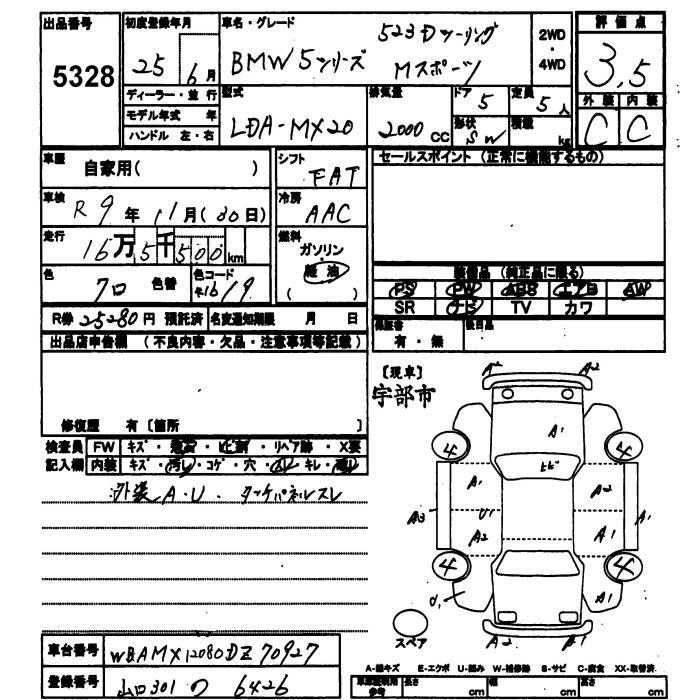 出品番号 5328
初度登録年月 25年 6月
ディーラー・並行
モデル年式 年
ハンドル 左・右
車名・グレード BMW5シリーズ 523Dツーリング Mスポーツ
2WD・4WD
評価点 3.5
外装 内装
C C
型式 LDA-MX20
排気量 2000CC
ドア 5
定員 5人
形状 SW
積載 kg
車歴 自家用( )
シフト FAT
セールスポイント (正常に機能するもの)
車検 R9年11月(30日)
冷房 AAC
走行 16万5千500km
燃料 ガソリン 軽油 ( )
色 クロ 色替
色コード 416/9
装備品 (純正品に限る)
PS PW ABS エアB AW
SR ナビ TV カワ
R券 25280円 預託済 名変通知期限 月 日
保証書 有・無 後日品
出品店申告欄 (不良内容・欠品・注意事項等記載)
修復歴 有 〔箇所 〕
[現車]
宇部市
検査員記入欄
FW キズ・・ヒビ割・リペア跡・X要
内装 キズ・汚レ・コゲ・穴・スレ・キレ・
外装A・U. タッケパネルスレ
A2 A2
A1
4 4
ヒビ
A1 A2
A3 U1 A1
A2 A1
4 4
U1 A1
A2 A1
スペア
A-線キズ E-エクボ U-凹み W-補修跡 S-サビ C-腐食 XX-取替済
車庫証明用参考 長さ cm 幅 cm 高さ cm
車台番号 WBAMX12080DZ70927
登録番号 山口301 つ 6426